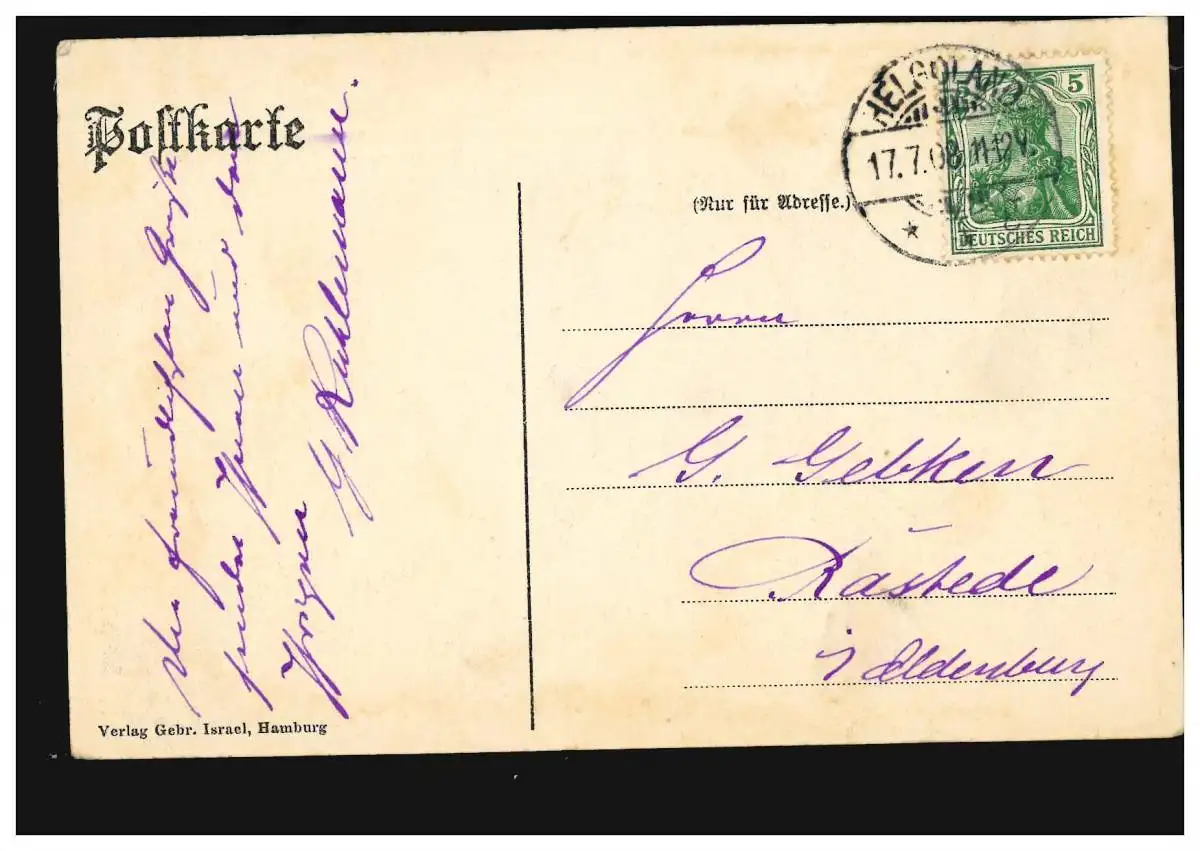 Postkarte
Die freundlichsten Grüße
sendet Ihnen und den
Ihrigen
G. Kuhlemann.
Verlag Gebr. Israel, Hamburg
(Nur für Adresse.)
HELGOLAND
17.7.08. 11-12V.
5
DEUTSCHES REICH
Herrn
G. Gebken
Rastede
i Oldenburg